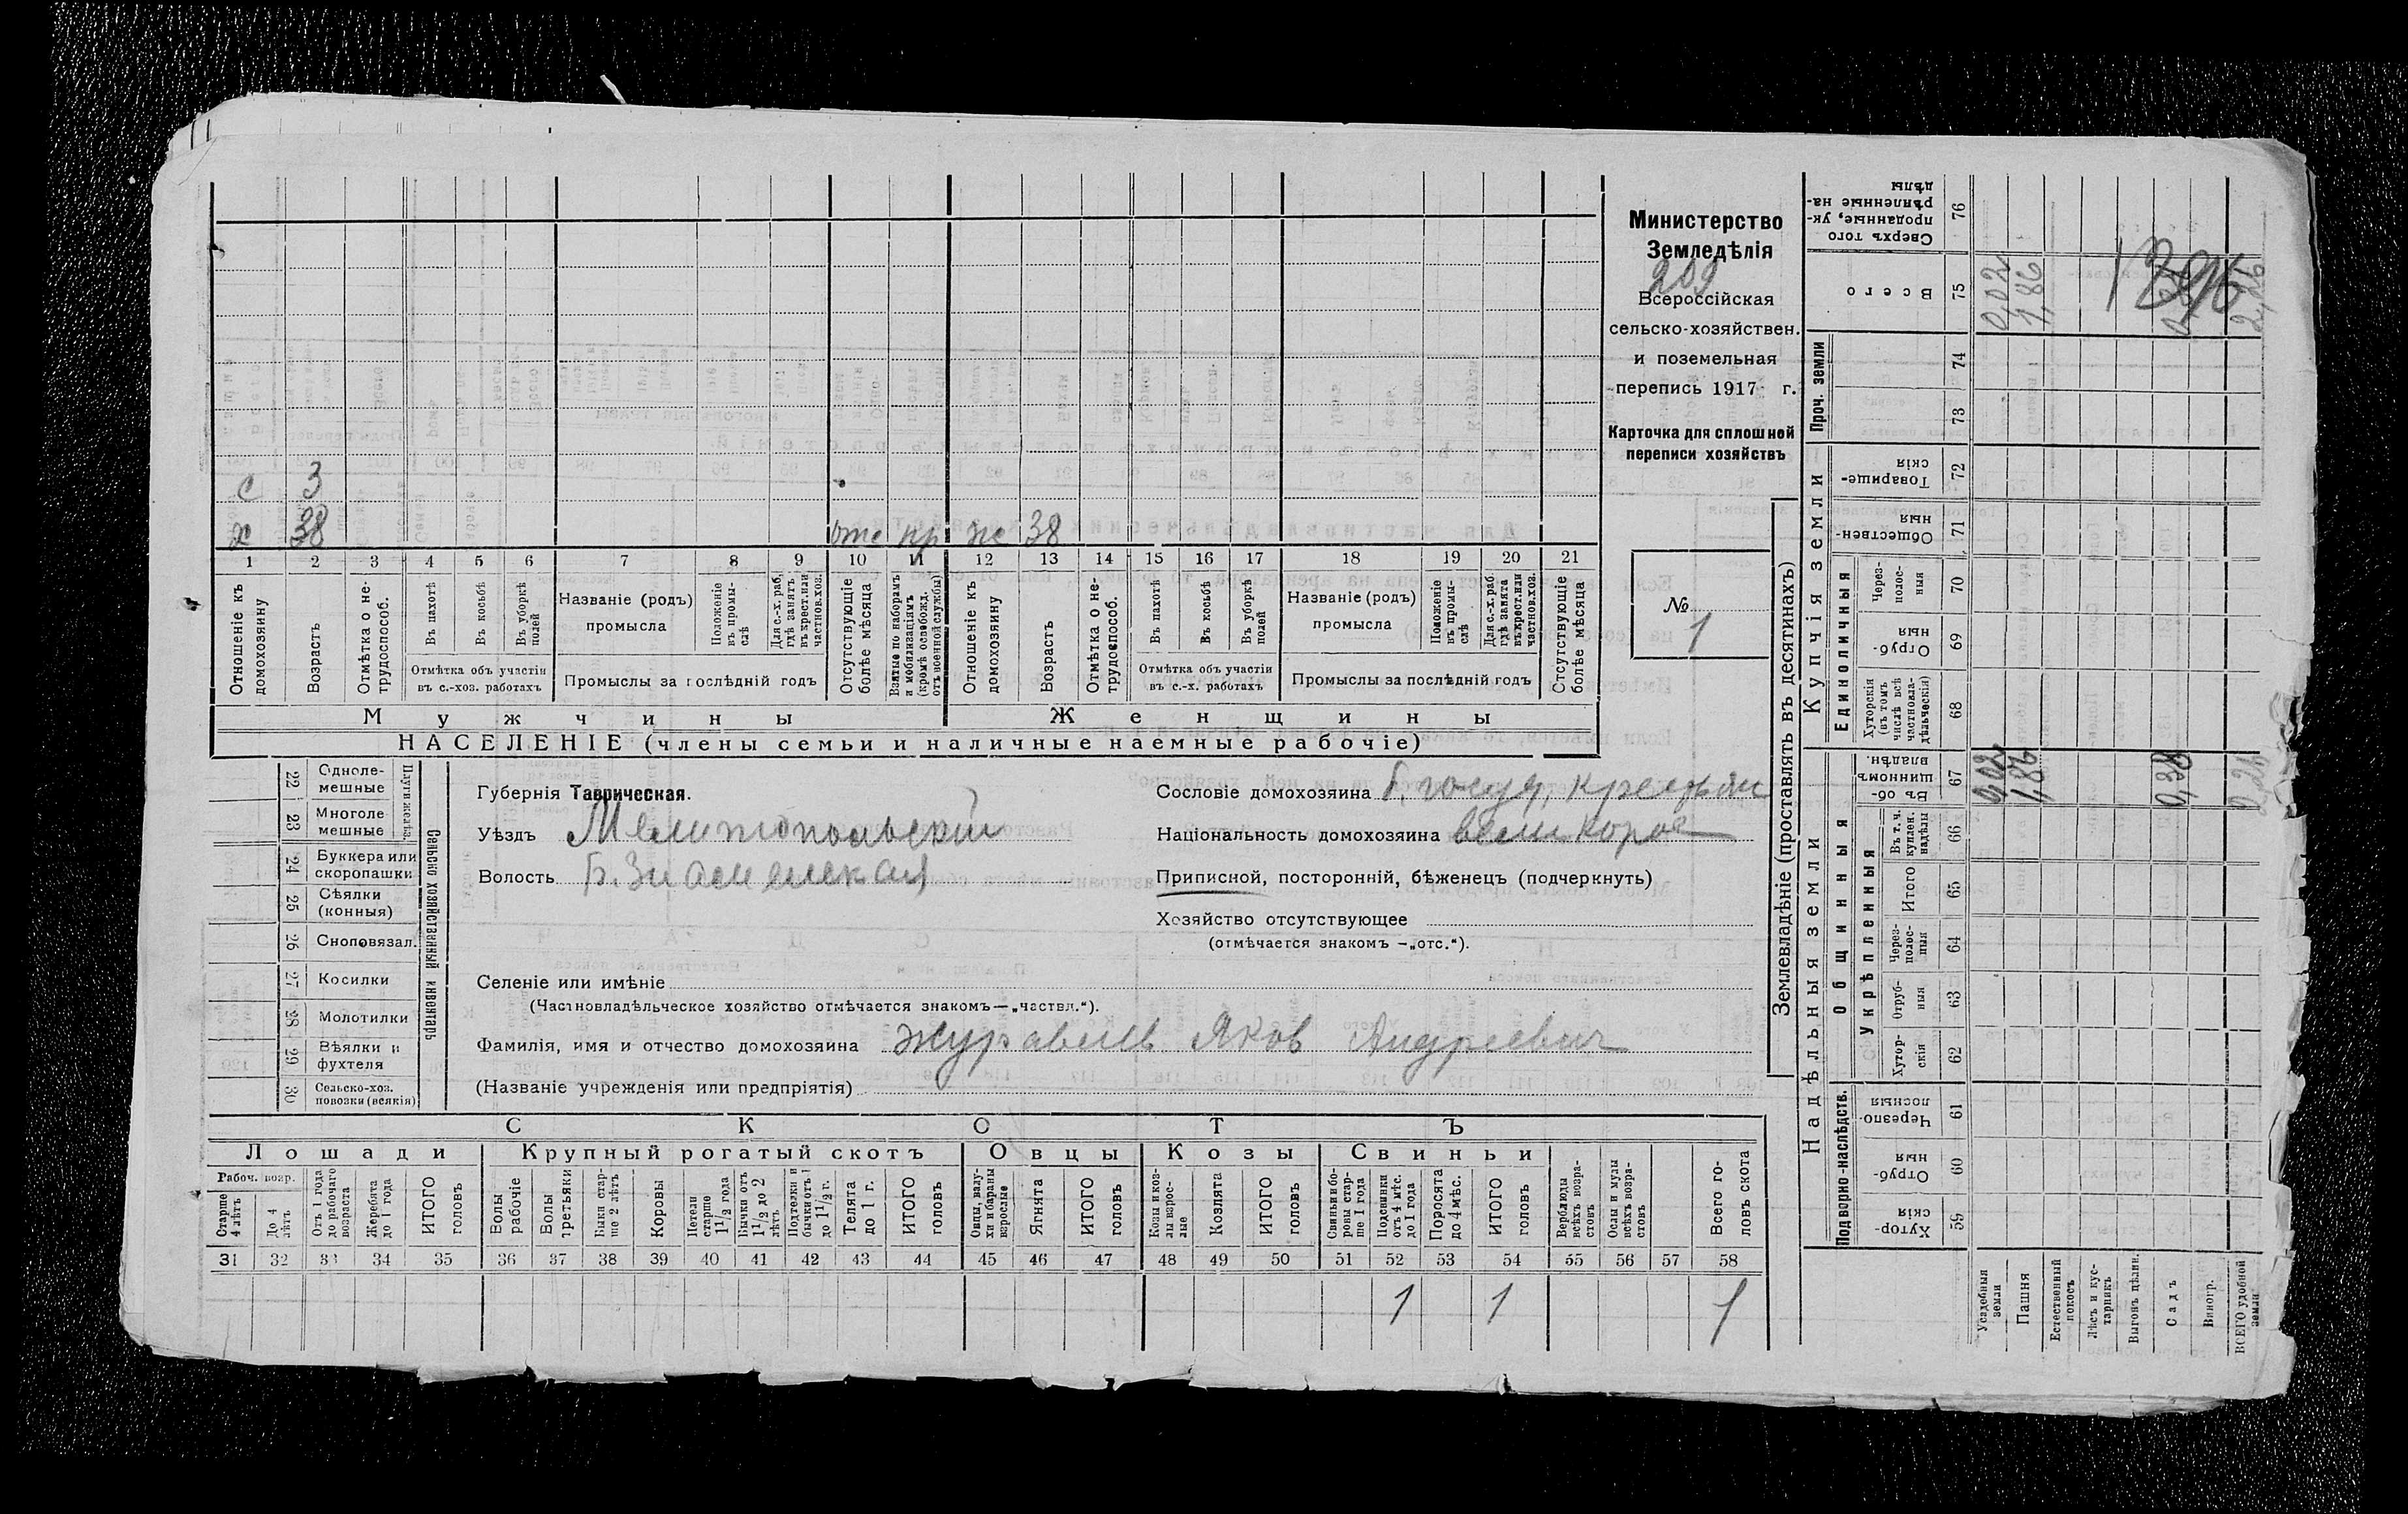 с 3
х 38 отс кр ж 38
1 2 3 4 5 6 7 8 9 10 11 12 13 14 15 16 17 18 19 20 21
Отношеніе къ домохозяину
Возрастъ
Отмѣтка о не-трудоспособ.
Въ пахотѣ
Въ косьбѣ
Въ уборкѣ полей
Отмѣтка объ участіи
въ с.-хоз. работахъ
Названіе (родъ)
промысла
Положеніе въ промы-слѣ
Для с.-х. раб. гдѣ занятъ въ крест. или частнов. хоз.
Промыслы за послѣдній годъ
Отсутствующіе болѣе мѣсяца
Взятые по наборамъ и мобилизаціямъ (кромѣ освобожд. отъ военной службы)
Отношеніе къ домохозяину
Возрастъ
Отмѣтка о не-трудоспособ.
Въ пахотѣ
Въ косьбѣ
Въ уборкѣ полей
Отмѣтка объ участіи
въ с.-х. работахъ
Названіе (родъ)
промысла
Положеніе въ промы-слѣ
Для с.-х. раб. гдѣ занята въ крест. или частнов. хоз.
Промыслы за послѣдній годъ
Отсутствующіе болѣе мѣсяца
Мужчины Женщины
НАСЕЛЕНІЕ (члены семьи и наличные наемные рабочіе)
Министерство
Земледѣлія
209
Всероссійская
сельско-хозяйствен.
и поземельная
перепись 1917 г.
Карточка для сплошной
переписи хозяйствъ
№
1
22 Одноле-
мешные
23 Многоле
мешные
Плуги желѣз.
24 Буккера или
скоропашки
25 Сѣялки
(конныя)
26 Сноповязал.
27 Косилки
28 Молотилки
29 Вѣялки и
фухтеля
30 Сельско-хоз.
повозки (всякія)
Сельско хозяйственный инвентарь
Губернія Таврическая.
Уѣздъ Мелитопольскій
Волость Б. Знаменская
Сословіе домохозяина б. госуд. крестьян
Національность домохозяина великорос
Приписной, посторонній, бѣженецъ (подчеркнуть)
Хозяйство отсутствующее
(отмѣчается знакомъ —„отс.“).
Селеніе или имѣніе
(Частновладѣльческое хозяйство отмѣчается знакомъ—„частвл.“).
Фамилія, имя и отчество домохозяина Журавель Яков Андреевич
(Названіе учрежденія или предпріятія)
СКОТЪ
Лошади Крупный рогатый скотъ Овцы Козы Свиньи
Рабоч. возр.
Старше 4 лѣтъ
До 4 лѣтъ
Отъ 1 года до рабочаго возраста
Жеребята до 1 года
ИТОГО головъ
Волы рабочіе
Волы третьяки
Быки стар-ше 2 лѣтъ
Коровы
Нетели старше 1½ года
Бычки отъ 1½ до 2 лѣтъ
Подтелки и бычки отъ 1 до 1½ г.
Телята до 1 г.
ИТОГО головъ
Овцы, валу-хи и бараны взрослые
Ягнята
ИТОГО головъ
Козы и коз-лы взрос-лые
Козлята
ИТОГО головъ
Свиньи и бо-ровы стар-ше 1 года
Подсвинки отъ 4 мѣс. до 1 года
Поросята до 4 мѣс.
ИТОГО головъ
Верблюды всѣхъ возра-стовъ
Ослы и мулы всѣхъ возра-стовъ
Всего го-ловъ скота
31 32 33 34 35 36 37 38 39 40 41 42 43 44 45 46 47 48 49 50 51 52 53 54 55 56 57 58
1 1 1
Землевладѣніе (проставлять въ десятинахъ)
Надѣльныя земли Купчія земли Проч. земли
Подворно-наслѣдств.
Общинныя
Укрѣпленныя
Единоличныя
Сверхъ того проданные, ук-рѣпленные на-дѣлы 76
Всего 75 0,02 1,86 2,26
74
73
Товарище-скія 72
Обществен-ныя 71
Через-полос-ныя 70
Отруб-ныя 69
Хуторскія (въ томъ числѣ всѣ частновла-дѣльческія) 68
Въ об-щинномъ владѣн. 67 0,02 1,86 0,38
Въ т. ч. куплен. надѣлы 66
Итого 65
Через-полос-ныя 64
Отруб-ныя 63
Хутор-скія 62
Черезпо-лосныя 61
Отруб-ныя 60
Хутор-скія 59
Усадебныя земли
Пашня
Естественный покосъ
Лѣсъ и кус-тарникъ
Выгонъ цѣлин.
Садъ
Виногр.
ВСЕГО удобной земли